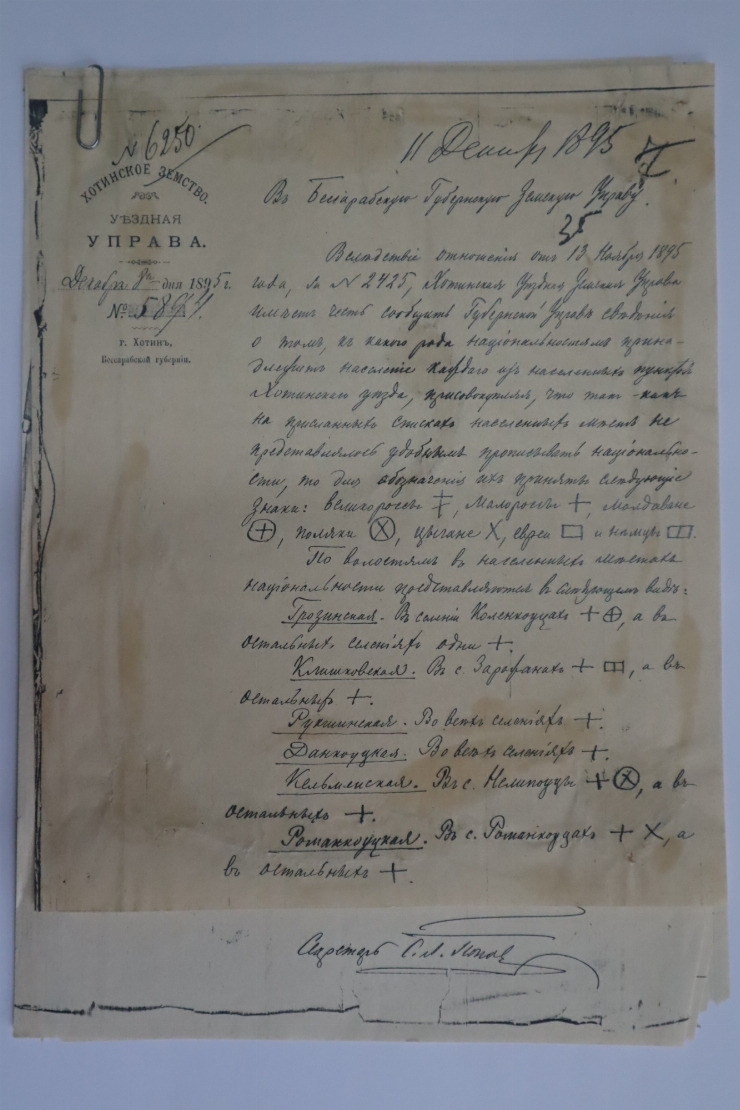 № 6250
11 Декабр 1895
ХОТИНСКОЕ ЗЕМСТВО.
УѢЗДНАЯ
УПРАВА.
Декабря 8 дня 1895 г.
№
г. Хотинъ,
Бессарабской губерніи.
Въ Бессарабскую Губернскую Земскую Управу.
35
Вслѣдствіе отношенія отъ 13 Ноября 1895
года, за № 2425, Хотинская Уѣздная Земская Управа
имѣетъ честь сообщить Губернской Управѣ свѣдѣнія
о томъ, къ какого рода національностямъ прина-
длежитъ населеніе каждаго изъ населенныхъ пунктовъ
Хотинскаго уѣзда, присовокупляя, что такъ-какъ
на присланныхъ спискахъ населенныхъ мѣстъ не
представлялось удобнымъ прописывать національно-
сти, то для обозначенія ихъ приняты слѣдующіе
знаки: великороссъ ‡, малороссъ +, молдаване
⊕, поляки ⊗, цыгане X, евреи и нѣмцы .
По волостямъ въ населенныхъ мѣстахъ
національности представляются въ слѣдующемъ видѣ:
Грозинская. Въ селеніи Коленкоуцахъ + ⊕, а въ
остальныхъ селеніяхъ одни +.
Клишковская. Въ с. Зарожанахъ + , а въ
остальныхъ +.
Рукшинская. Во всѣхъ селеніяхъ +.
Данкоуцкая. Во всѣхъ селеніяхъ +.
Кельменская. Въ с. Нелипоуцы + ⊗, а въ
остальныхъ +.
Романкоуцкая. Въ с. Романкоуцахъ + X, а
въ остальныхъ +.
Секретарь С. Л. Попов